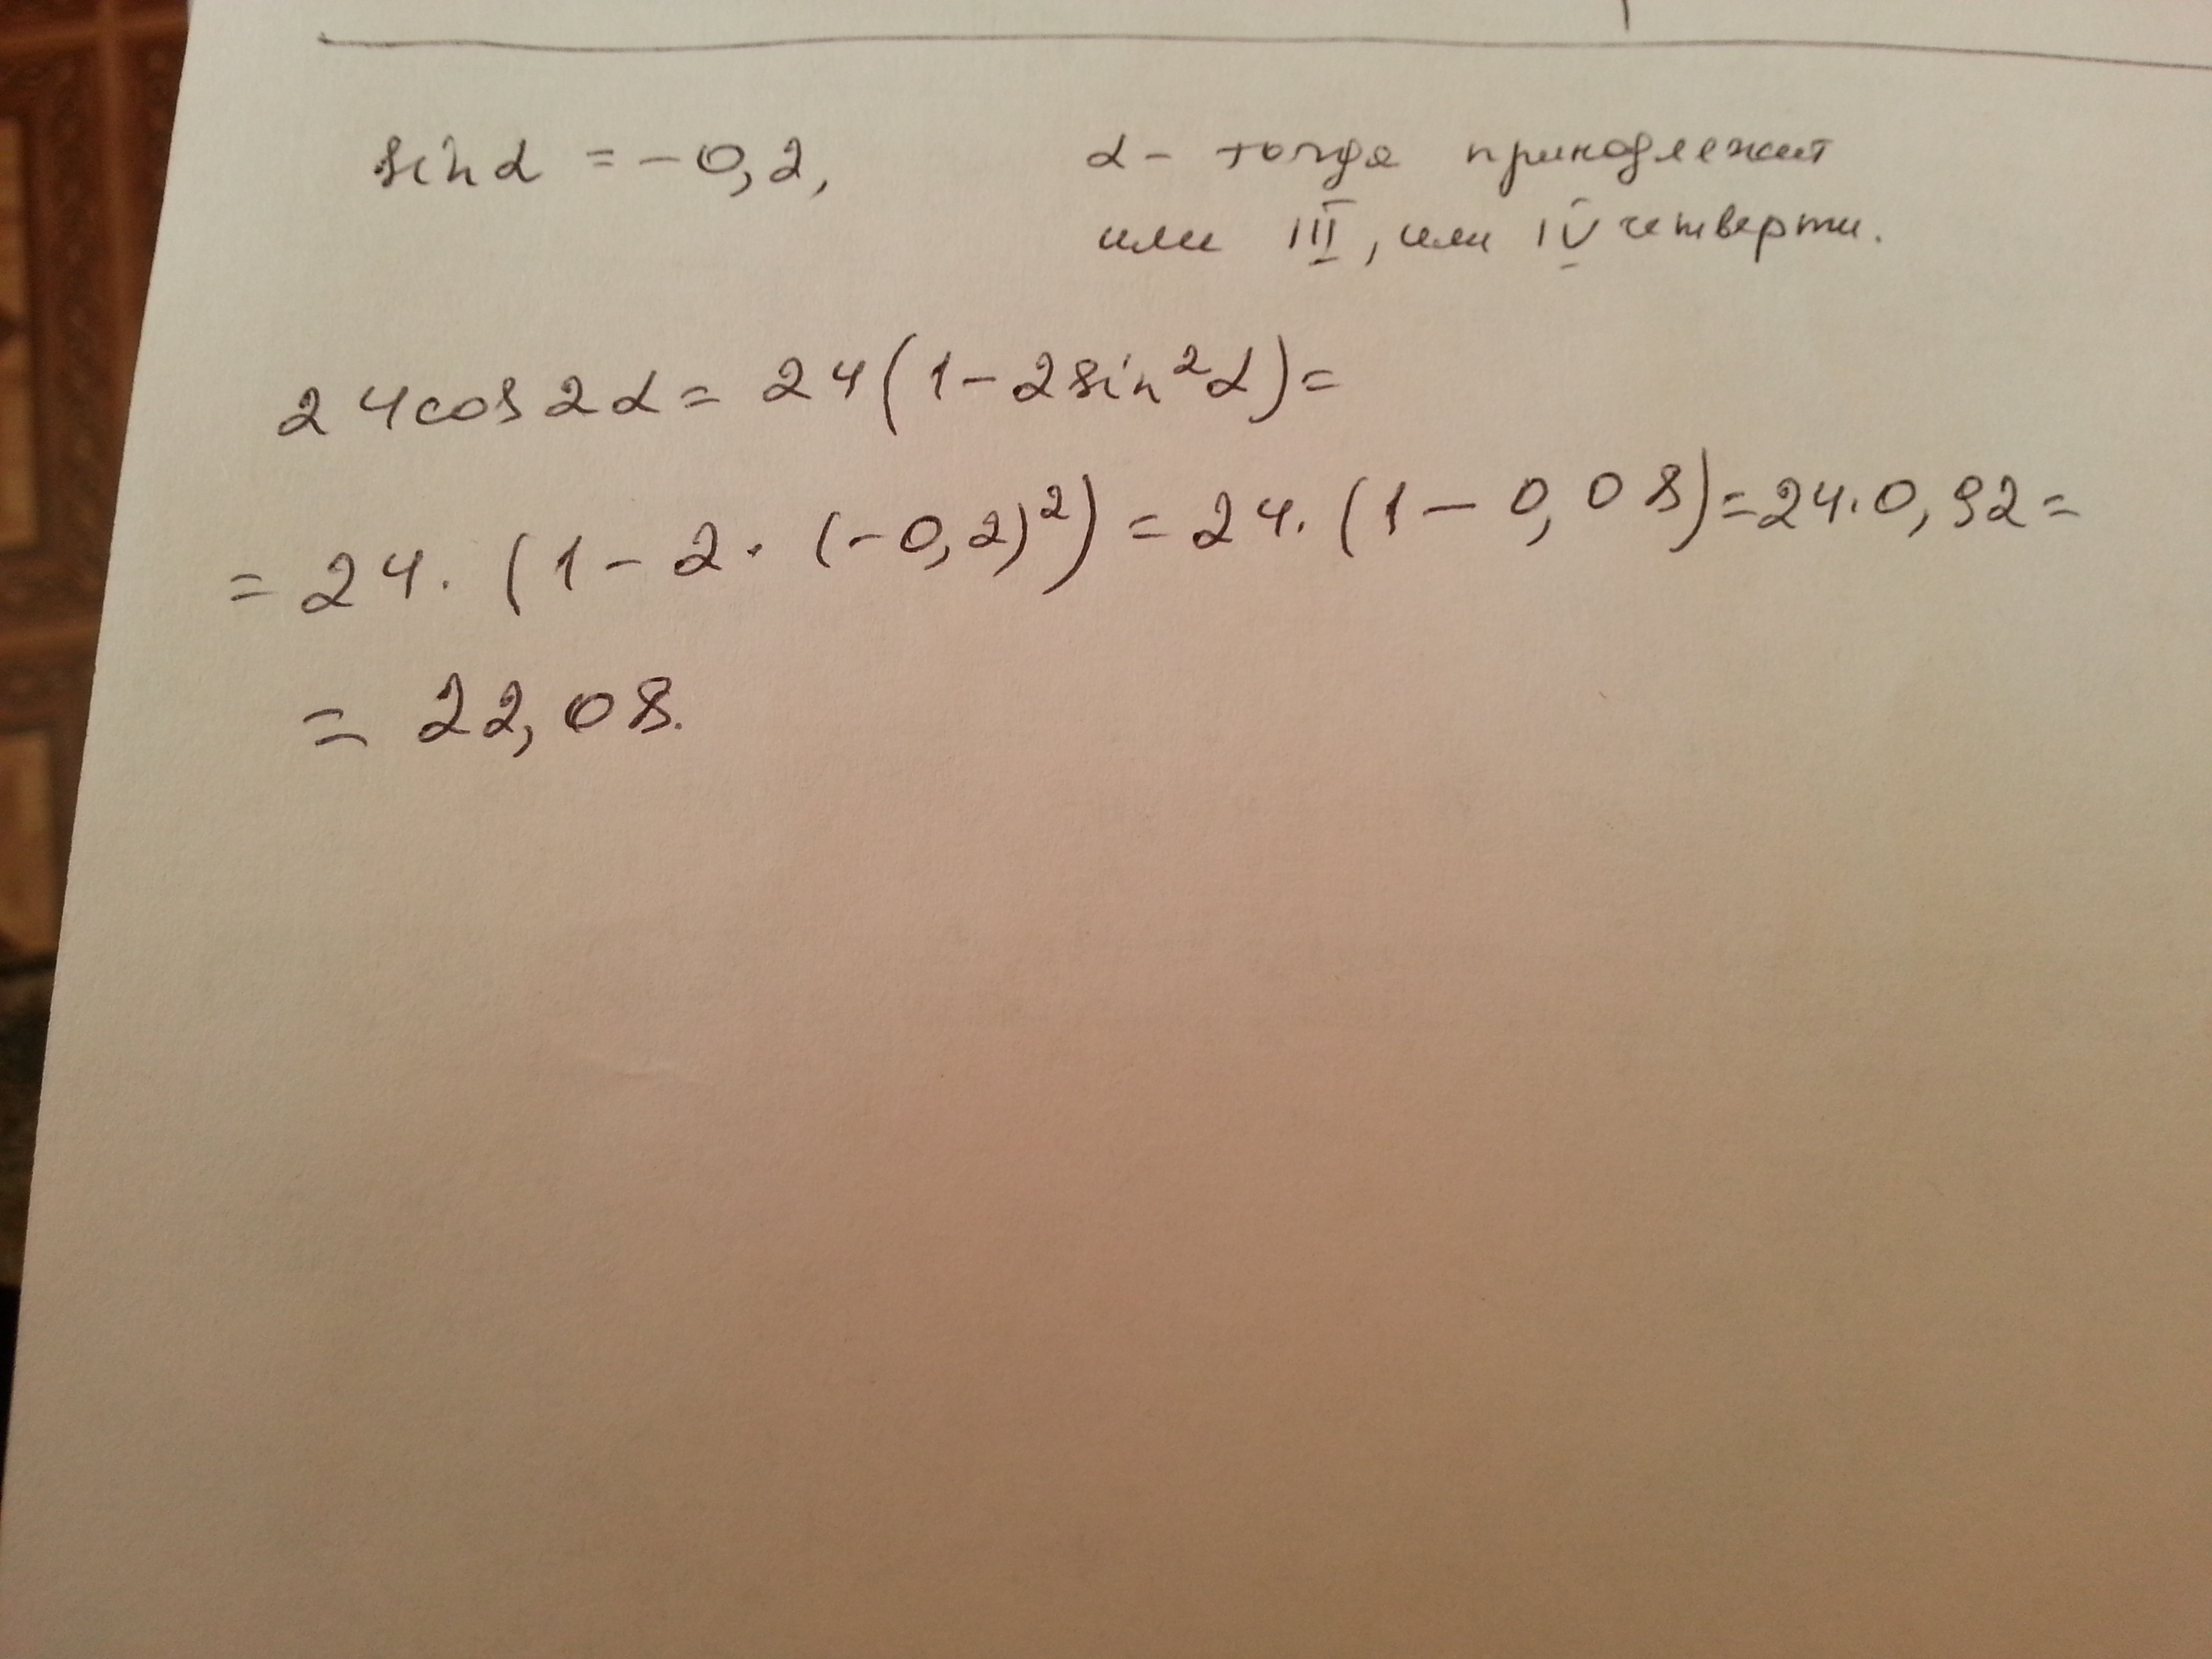 sin α = -0,2,
α - тогда принадлежит
или III, или IV четверти.
24cos2α = 24(1-2sin²α)=
= 24 · (1 - 2 · (-0,2)²) = 24 · (1 - 0,08) = 24 · 0,92 =
= 22,08.